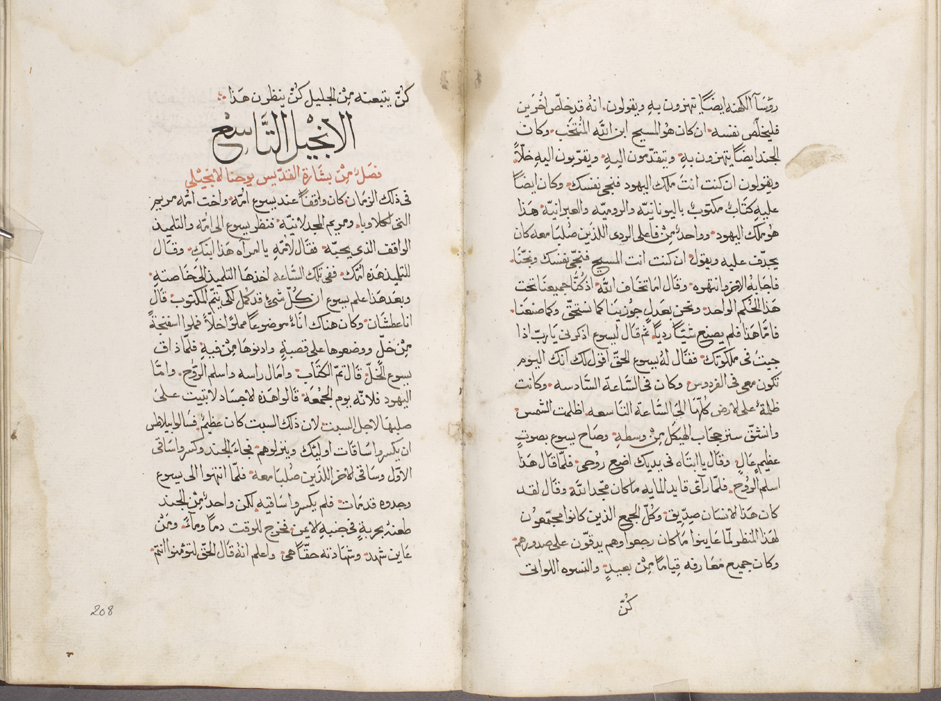 رؤسآ الكهنه ايضًا يتهزون به ويقولون انه قد خلص اخرين
فليخلص نفسه ان كان هو المسيح ابن الله المنتخب وكان
الجند ايضًا يتهزون به وتقدمون اليه ويقربون اليه خلًا
ويقولون ان كنت انت ملك اليهود فنجى نفسك وكان ايضًا
عليه كتاب مكتوب باليونانيه والروميه والعبرانية هذا
هو ملك اليهود وواحد من فاعلى الردى اللذين صلبا معه كان
يجدف عليه ويقول ان كنت انت المسيح فنجى نفسك ونجنا
فاجابه الاخر وانتهره وقال اما تخاف الله اذ كنا جميعنا تحت
هذا الحكم الواحد ونحن بعدل جوزينا كما نستحق وكما صنعنا
فاما هذا فلم يصنع شيًا رديًا ثم قال ليسوع اذكرنى يا رب اذا
جيت فى ملكوتك فقال له يسوع الحق اقول لك انك اليوم
تكون معى فى الفردوس وكان فى السّاعة السّادسه وكانت
ظلمة على الارض كلها الى السّاعة التاسعه اظلمت الشمس
وانشقّ ستر حجاب الهيكل من وسطه وصاح يسوع بصوتٍ
عظيم عالٍ وقال يا ابتاه فى يديك اضع روحى فلمّا قال هذا
اسلم الروح فلمّا رآى قايد المايه ما كان مجّد الله وقال لقد
كان هذا الانسان صدّيق وكلّ الجمع الذين كانوا مجتمعون
لهذا المنظر لمّا عاينوا ما كان رجعوا وهم يدقون على صدورهم
وكان جميع معارفه قيامًا من بعيدٍ والنسوه اللواتى
كنّ
كنّ يتبعنه من الجليل كنّ ينظرن هذا
الانجيل التّاسع
فصل من بشارة القديس يوحنا الانجيلى
فى ذلك الزمان كان واقفًا عند يسوع امّه واخت امّه مريم
التى اكلاوبا ومريم المجدلانية فنظر يسوع الى امّه والتلميذ
الواقف الذى يحبّه فقال لامّه يا امرآه هذا ابنك وقال
للتلميذ هذه امّك ففى تلك السّاعه اخذها التلميذ الى خاصته
وبعد هذا علم يسوع ان كلّ شىٍ قد كمل لكى يتمّ المكتوب قال
انا عطشان وكان هناك انآءً موضوعًا مملوًا خلًا فملوا اسفنجةً
من خلّ ووضعوها على قصبةٍ وادنوها من فيه فلمّا ذاق
يسوع الخلّ قال تمّ الكتاب وامال راسه واسلم الروح وامّا
اليهود فلانّه يوم الجمعة قالوا هذه الاجساد لا تبيت على
صليبها لاجل السبت لان ذلك السبت كان عظيم فسالوا بيلاطس
ان يكسروا ساقات اوليك وينزلوهم فجاء الجند وكسروا ساقى
الاول وساقى الاخر اللذين صلبا معه فلمّا انتهوا الى يسوع
وجدوه قد مات فلم يكسروا ساقيه لكن واحد من الجند
طعنه بحربةٍ فى جنبه الايمن فخرج للوقت دمًا ومآءً ومن
عاين شهد وشهادته حقًا هى واعلم انه قال الحق لتومنوا انتم
208